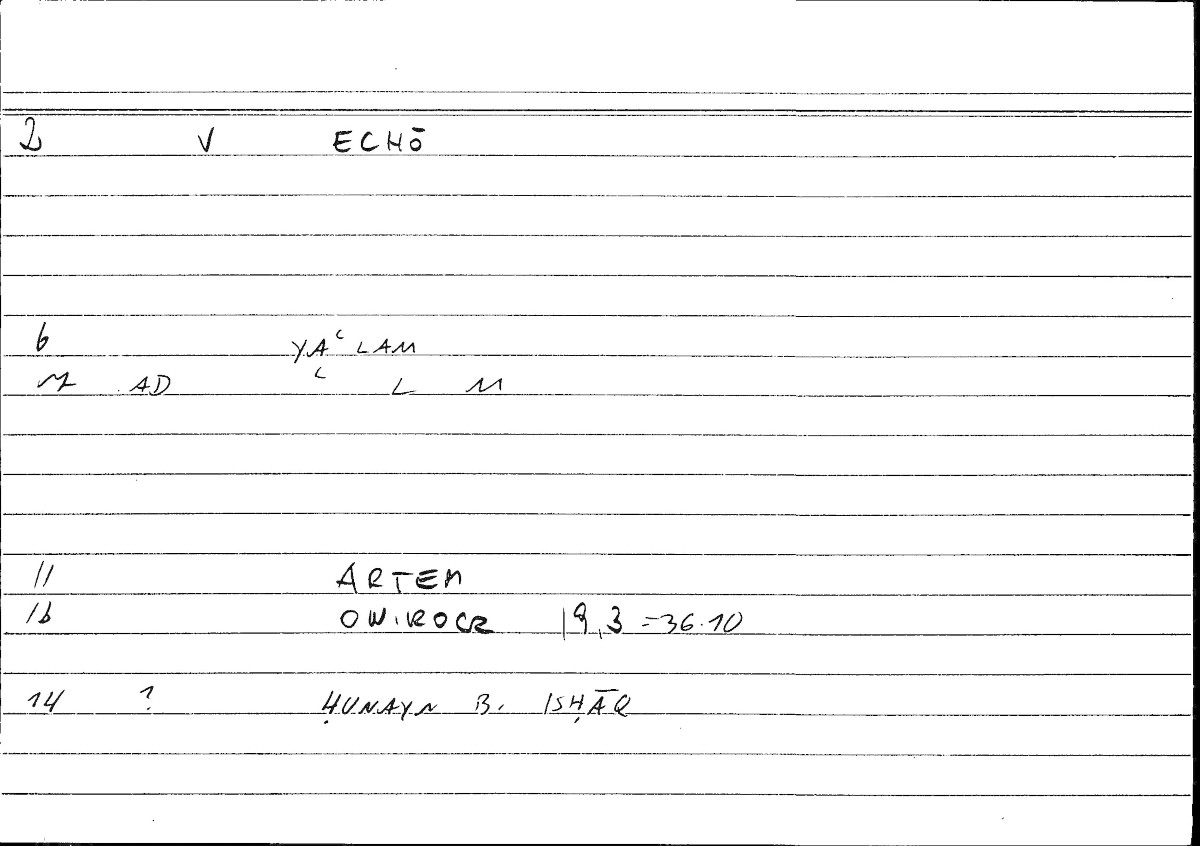 2 V ECHŌ
6 YAʿLAM
AD ʿ L M
11 ARTEM
1b ONIROCR 19,3 =36.10
14 ? ḤUNAYN B. ISḤĀQ